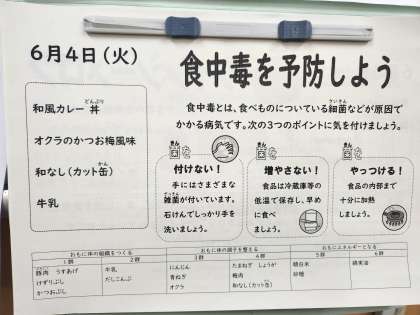 6月4日（火）
食中毒を予防しよう
和風カレー丼
どんぶり
オクラのかつお梅風味
和なし（カット缶）
かん
牛乳
食中毒とは、食べものについている細菌などが原因で
さいきん
かかる病気です。次の3つのポイントに気を付けましょう。
菌を
きん
付けない！
手にはさまざまな
雑菌が付いています。
ざっきん
石けんでしっかり手を
洗いましょう。
菌を
きん
増やさない！
食品は冷蔵庫等の
低温で保存し、早め
に食べ
ましょう。
菌を
きん
やっつける！
食品の内部まで
十分に加熱
しましょう。
おもに体の組織をつくる
おもに体の調子を整える
おもにエネルギーとなる
1群
2群
3群
4群
5群
6群
豚肉 うすあげ
けずりぶし
かつおぶし
牛乳
だしこんぶ
にんじん
青ねぎ
オクラ
たまねぎ しょうが
梅肉
和なし（カット缶）
精白米
砂糖
綿実油